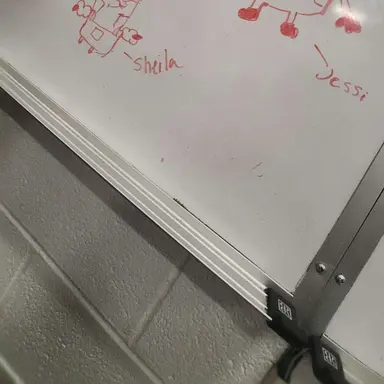 Sheila
Jessi